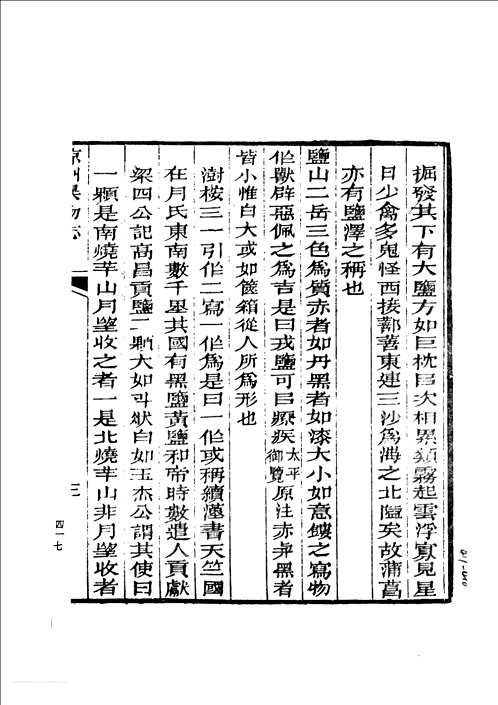 掘發其下有大鹽方如巨枕㠯次相累類霧起雲浮寡見星
日少禽多鬼怪西接鄯善東連三沙為海之北隘矣故蒲昌
亦有鹽澤之稱也
鹽山二岳三色為質赤者如丹黑者如漆大小如意鏤之寫物
作獸辟惡佩之為吉是曰戎鹽可㠯療疾太平御覽原注赤弁黑者
皆小惟白大或如篋箱從人所為形也
澍桉三一引作二寫一作為是曰一作或稱續漢書天竺國
在月氏東南數千里其國有黑鹽黃鹽和帝時數遣人貢獻
梁四公記高昌貢鹽二顆大如斗狀白如玉杰公謂其使曰
一顆是南燒羊山月望收之者一是北燒羊山非月望收者
涼州異物志
三
四一七